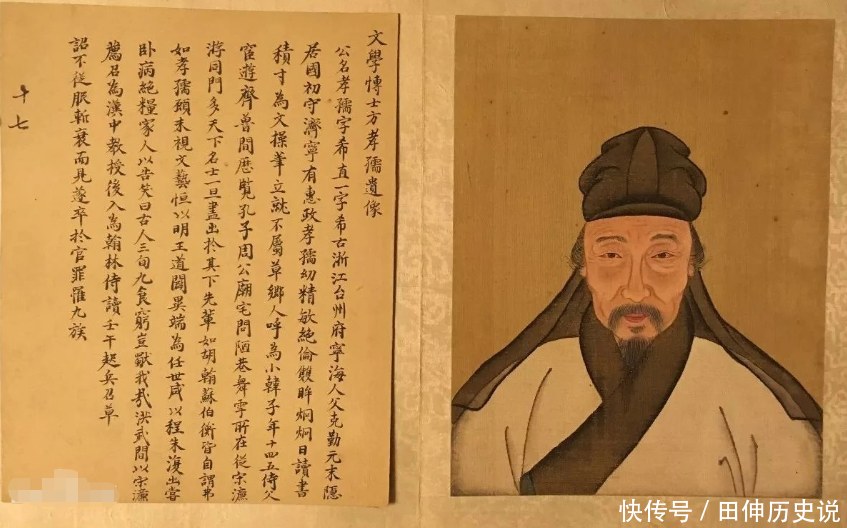 文學博士方孝孺遺像
公名孝孺字希直一字希古浙江台州府寧海人父克勤元末隱
居國初守濟寧有惠政孝孺幼精敏絕倫雙眸炯炯日讀書
積寸為文操筆立就不屬草鄉人呼為小韓子年十四五侍父
宦遊齊魯間歷覽孔子周公廟宅問陋巷舞雩所在從宗濂
游同門多天下名士一旦盡出於其下先輩如胡翰蘇伯衡皆自謂弗
如孝孺頭末視文藝恒以明王道闢異端為任世咸以程朱復出嘗
卧病絕糧家人以告笑曰古人三旬九食窮豈獨我哉洪武間以宗濂
薦召為漢中教授後入為翰林侍讀壬午起兵召草
詔不從服斬衰而見遂卒於官罪罹九族
十七
快传号 / 田伸历史说